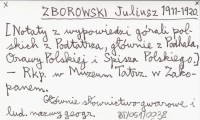 ZBOROWSKI Juliusz 1911-1920.
[Notaty z wypowiedzi górali pol-
skich z Podtatrza, głównie z Podhala,
Orawy Polskiej i Spisza Polskiego.]
— Rkp. w Muzeum Tatrz. w Zako-
panem.
Głównie słownictwo gwarowe i
lud. nazwy geogr.